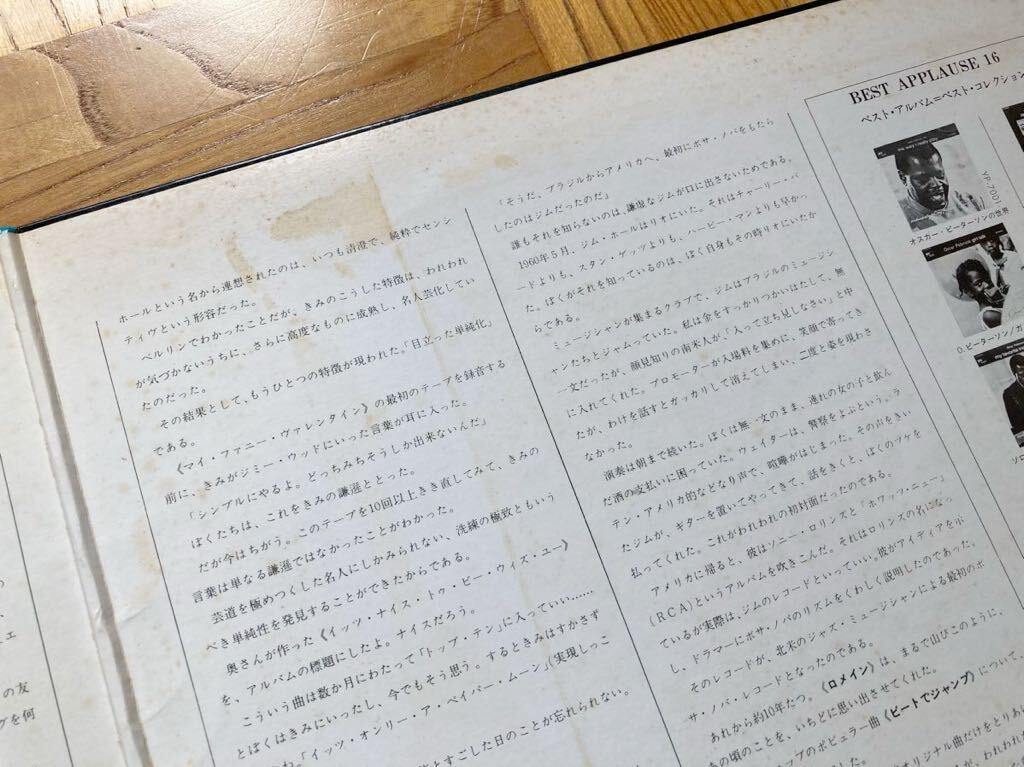 ホールという名から連想されたのは、いつも清澄で、純粋でセンシ
ティヴという形容だった。
ベルリンでわかったことだが、きみのこうした特徴は、われわれ
が気づかないうちに、さらに高度なものに成熟し、名人芸化してい
たのだった。
その結果として、もうひとつの特徴が現われた。「目立った単純化」
である。
《マイ・ファニー・ヴァレンタイン》の最初のテープを録音する
前に、きみがジミー・ウッドにいった言葉が耳に入った。
「シンプルにやるよ。どっちみちそうしか出来ないんだ」
ぼくたちは、これをきみの謙遜ととった。
だが今はちがう。このテープを10回以上きき直してみて、きみの
言葉は単なる謙遜ではなかったことがわかった。
芸道を極めつくした名人にしかみられない、洗練の極致ともいう
べき単純性を発見することができたからである。
奥さんが作った《イッツ・ナイス・トゥ・ビー・ウィズ・ユー》
を、アルバムの標題にしたよ。ナイスだろう。
こういう曲は数か月にわたって「トップ・テン」に入っていい……
とぼくはきみにいったし、今でもそう思う。するときみはすかさず
「イッツ・オンリー・ア・ペイパー・ムーン」(実現しっこ
すごした日のことが忘れられない。
「そうだ、ブラジルからアメリカへ、最初にボサ・ノバをもたら
したのはジムだったのだ」
誰もそれを知らないのは、謙虚なジムが口に出さないためである。
1960年5月、ジム・ホールはリオにいた。それはチャーリー・バ
ードよりも、スタン・ゲッツよりも、ハービー・マンよりも早かっ
た。ぼくがそれを知っているのは、ぼく自身もその時リオにいたか
らである。
ミュージシャンが集まるクラブで、ジムはブラジルのミュージシ
ャンたちとジャムっていた。私は金をすっかりつかいはたして、無
一文だったが、顔見知りの南米人が、「入って立ち見しなさい」と中
に入れてくれた。プロモーターが入場料を集めに、笑顔で寄ってき
たが、わけを話すとガッカリして消えてしまい、二度と姿を現わさ
なかった。
演奏は朝まで続いた。ぼくは無一文のまま、連れの女の子と飲ん
だ酒の支払いに困っていた。ウェイターは、警察をよぶという。ラ
テン・アメリカ的などなり声で、喧嘩がはじまった。その声をきい
たジムが、ギターを置いてやってきて、話をきくと、ぼくのツケを
払ってくれた。これがわれわれの初対面だったのである。
アメリカに帰ると、彼はソニー・ロリンズと「ホワッツ・ニュー」
(RCA)というアルバムを吹きこんだ。それはロリンズの名になっ
ているが実際は、ジムのレコードといっていい。彼がアイディアを示
し、ドラマーにボサ・ノバのリズムをくわしく説明したのであった。
そのレコードが、北米のジャズ・ミュージシャンによる最初のボ
サ・ノバ・レコードとなったのである。
あれから約10年たつ。《ロメイン》は、まるで山びこのように、
あの頃のことを、いちどに思い出させてくれた。
ップのポピュラー曲《ビートでジャンプ》について、
オリジナル曲だけをとりあ
BEST APPLAUSE 16
ベスト・アルバム=ベスト・コレクション
YP-7001
オスカー・ピーターソンの世界
O.ピーターソン/ガ
ソロ
エ
の友
グを何